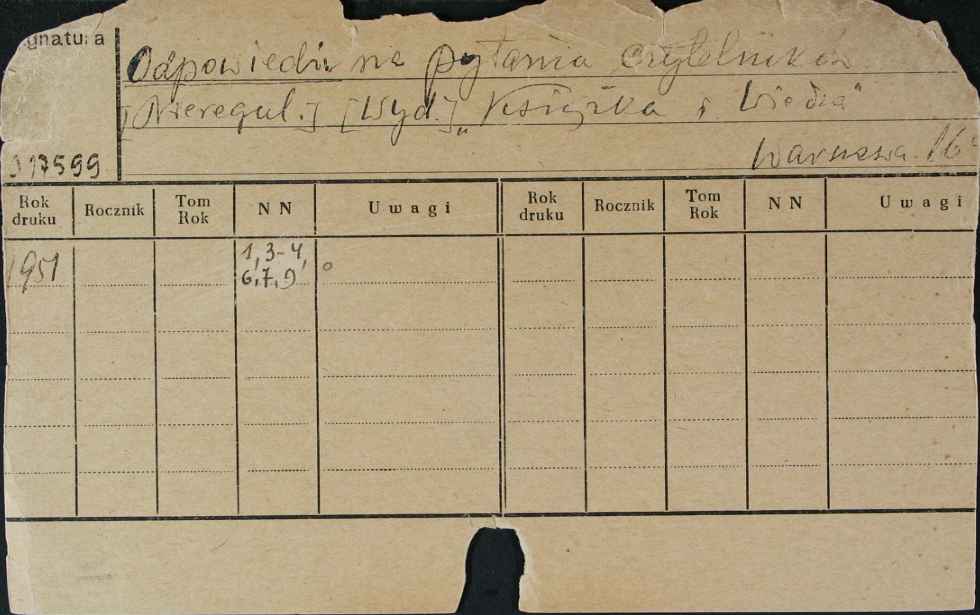 ygnatura
Odpowiedzi na pytania czytelników
[Nieregul.] [Wyd.] „Książka i Wiedza"
Warszawa. 16°
J 17599
Rok druku Rocznik Tom Rok NN Uwagi Rok druku Rocznik Tom Rok NN Uwagi
1951 1, 3-4,
6, 7, 9